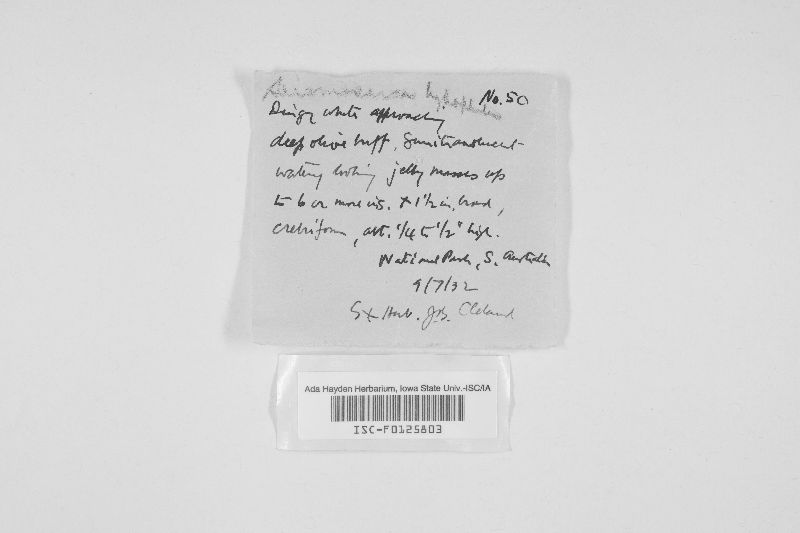 No. 50
Dingy white approaching
deep olive buff, Semitranslucent-
watery looking jelly masses up
to 6 or more ins. × 1 1/2 in. broad,
alt. 1/4 to 1/2" high.
National Park, S. Australia
9/7/32
Ex Herb. J.B. Cleland
Ada Hayden Herbarium, Iowa State Univ.-ISC/IA
ISC-F0125803